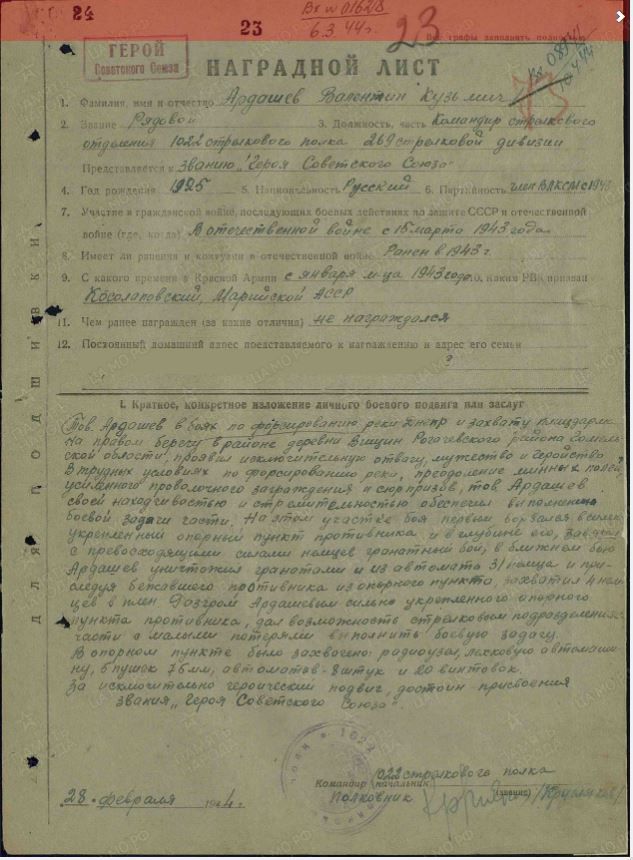 24
Вх № 01628
6.3.44г.
23
23
Все графы заполнять
ГЕРОЙ
Советского Союза
Вх 08941
10.4.44
НАГРАДНОЙ ЛИСТ
1. Фамилия, имя и отчество Ардашев Валентин Кузьмич
2. Звание Рядовой 3. Должность, часть Командир стрелкового
отделения 1022 стрелкового полка 269 стрелковой дивизии
Представляется к званию „Героя Советского Союза"
4. Год рождения 1925 5. Национальность Русский 6. Партийность член ВЛКСМ с
7. Участие в гражданской войне, последующих боевых действиях по защите СССР и отечественной
войне (где, когда) В отечественной войне с 15 марта 1943 года
8. Имеет ли ранения и контузии в отечественной войне Ранен в 1943 г
9. С какого времени в Красной Армии с января м-ца 1943 года 10. каким РВК призван
Косолаповский, Марийской АССР
11. Чем ранее награжден (за какие отличия) не награждался
12. Постоянный домашний адрес представляемого к награждению и адрес его семьи
?
I. Краткое, конкретное изложение личного боевого подвига или заслуг
Тов. Ардашев в боях по форсированию реки Днепр и захвату плацдарма
на правом берегу в районе деревни Вищин Рогачевского района Гомель-
ской области, проявил исключительную отвагу, мужество и геройство
В трудных условиях по форсированию реки, преодоление минных полей,
усиленного проволочного заграждения и сюрпризов, тов. Ардашев
своей находчивостью и стремительностью обеспечил выполнение
боевой задачи части. На этом участке боя первый ворвался в сильно
укрепленный опорный пункт противника и в глубине его, завязал
с превосходящими силами немцев гранатный бой, в ближнем бою
Ардашев уничтожил гранатами и из автомата 31 немца и при-
следуя бежавшего противника из опорного пункта, захватил 4 нем-
цев в плен. Разгром Ардашевым сильно укрепленного опорного
пункта противника, дал возможность стрелковым подразделениям
части с малыми потерями выполнить боевую задачу.
В опорном пункте было захвачено: радиоузел, легковую автомаши-
ну, 6 пушек 76мм, автоматов-8 штук и 20 винтовок.
За исключительно героический подвиг, достоин присвоения
звания „Героя Советского Союза"
1022 стрелкового полка
Командир начальник
Полковник (звание)
28 февраля 1944 г.
1022
для подшивки